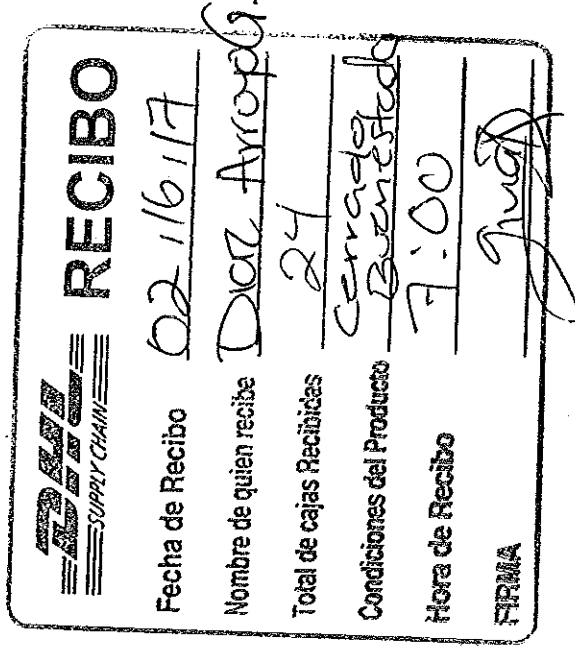 DHL RECIBO
SUPPLY CHAIN
Fecha de Recibo 02/16/17
Nombre de quien recibe Diaz Arroyo G.
Total de cajas Recibidas 24
Condiciones del Producto Cerrado, Buen estado
Hora de Recibo 7:00
FIRMA